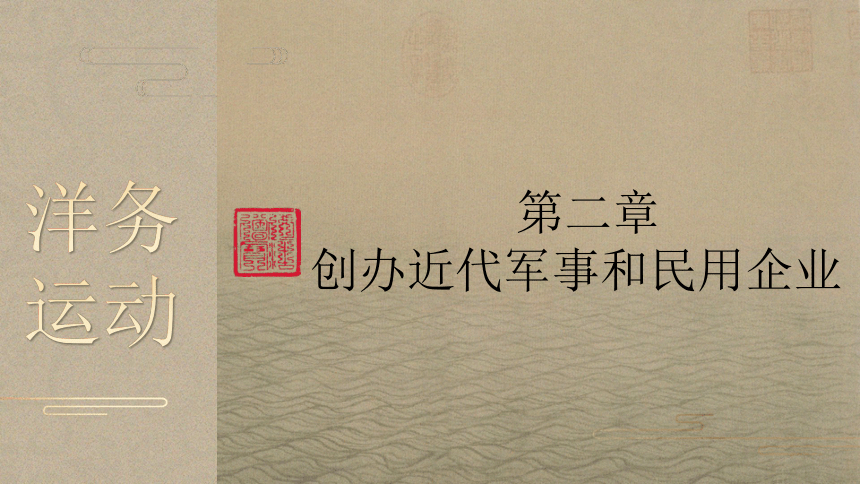 洋务
运动
第二章
创办近代军事和民用企业